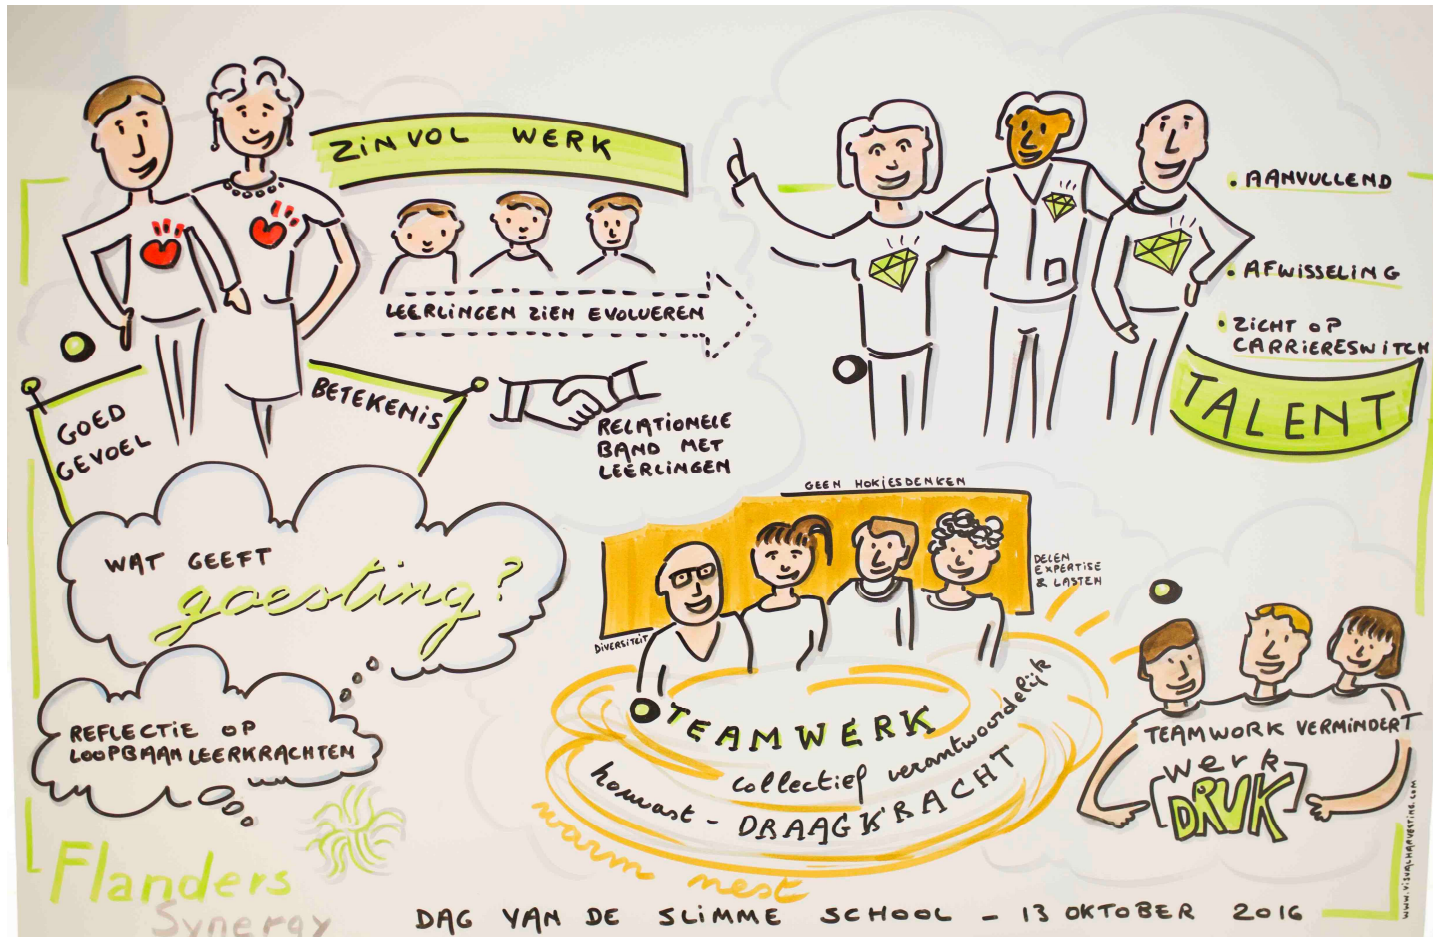 ZINVOL WERK
LEERLINGEN ZIEN EVOLUEREN
GOED
GEVOEL
BETEKENIS
RELATIONELE
BAND MET
LEERLINGEN
• AANVULLEND
• AFWISSELING
• ZICHT OP
CARRIERESWITCH
TALENT
WAT GEEFT
goesting?
REFLECTIE OP
LOOPBAAN LEERKRACHTEN
GEEN HOKJESDENKEN
DELEN
EXPERTISE
& LASTEN
DIVERSITEIT
TEAMWERK
collectief verantwoordelijk
houvast - DRAAGKRACHT
warm nest
TEAMWORK VERMINDERT
werk
DRUK
WWW.VISUALHARVESTING.COM
Flanders
Synergy
DAG VAN DE SLIMME SCHOOL - 13 OKTOBER 2016